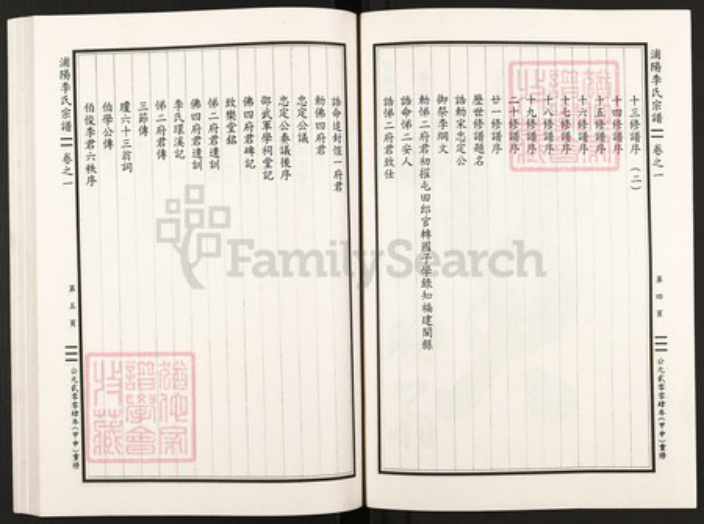 浦陽李氏宗譜
卷之一
第四頁
公元貳零零肆年（甲申）重修
十三修譜序（二）
十四修譜序
十五修譜序
十六修譜序
十七修譜序
十八修譜序
十九修譜序
二十修譜序
廿一修譜序
歷世修譜題名
誥勅宋忠定公
御祭李綱文
勅悌二府君初擢屯田郎官轉國子學錄知福建閩縣
誥命悌二安人
誥悌二府君致仕
誥命追封愷一府君
勅佛四府君
忠定公議
忠定公奏議後序
邵武軍學祠堂記
佛四府君碑記
致樂堂銘
悌二府君遺訓
佛四府君遺訓
李氏環溪記
悌二府君傳
三節傳
瓊六十三翁詞
伯學公傳
伯俊李君六秩序
浦陽李氏宗譜
卷之一
第五頁
公元貳零零肆年（甲申）重修
FamilySearch